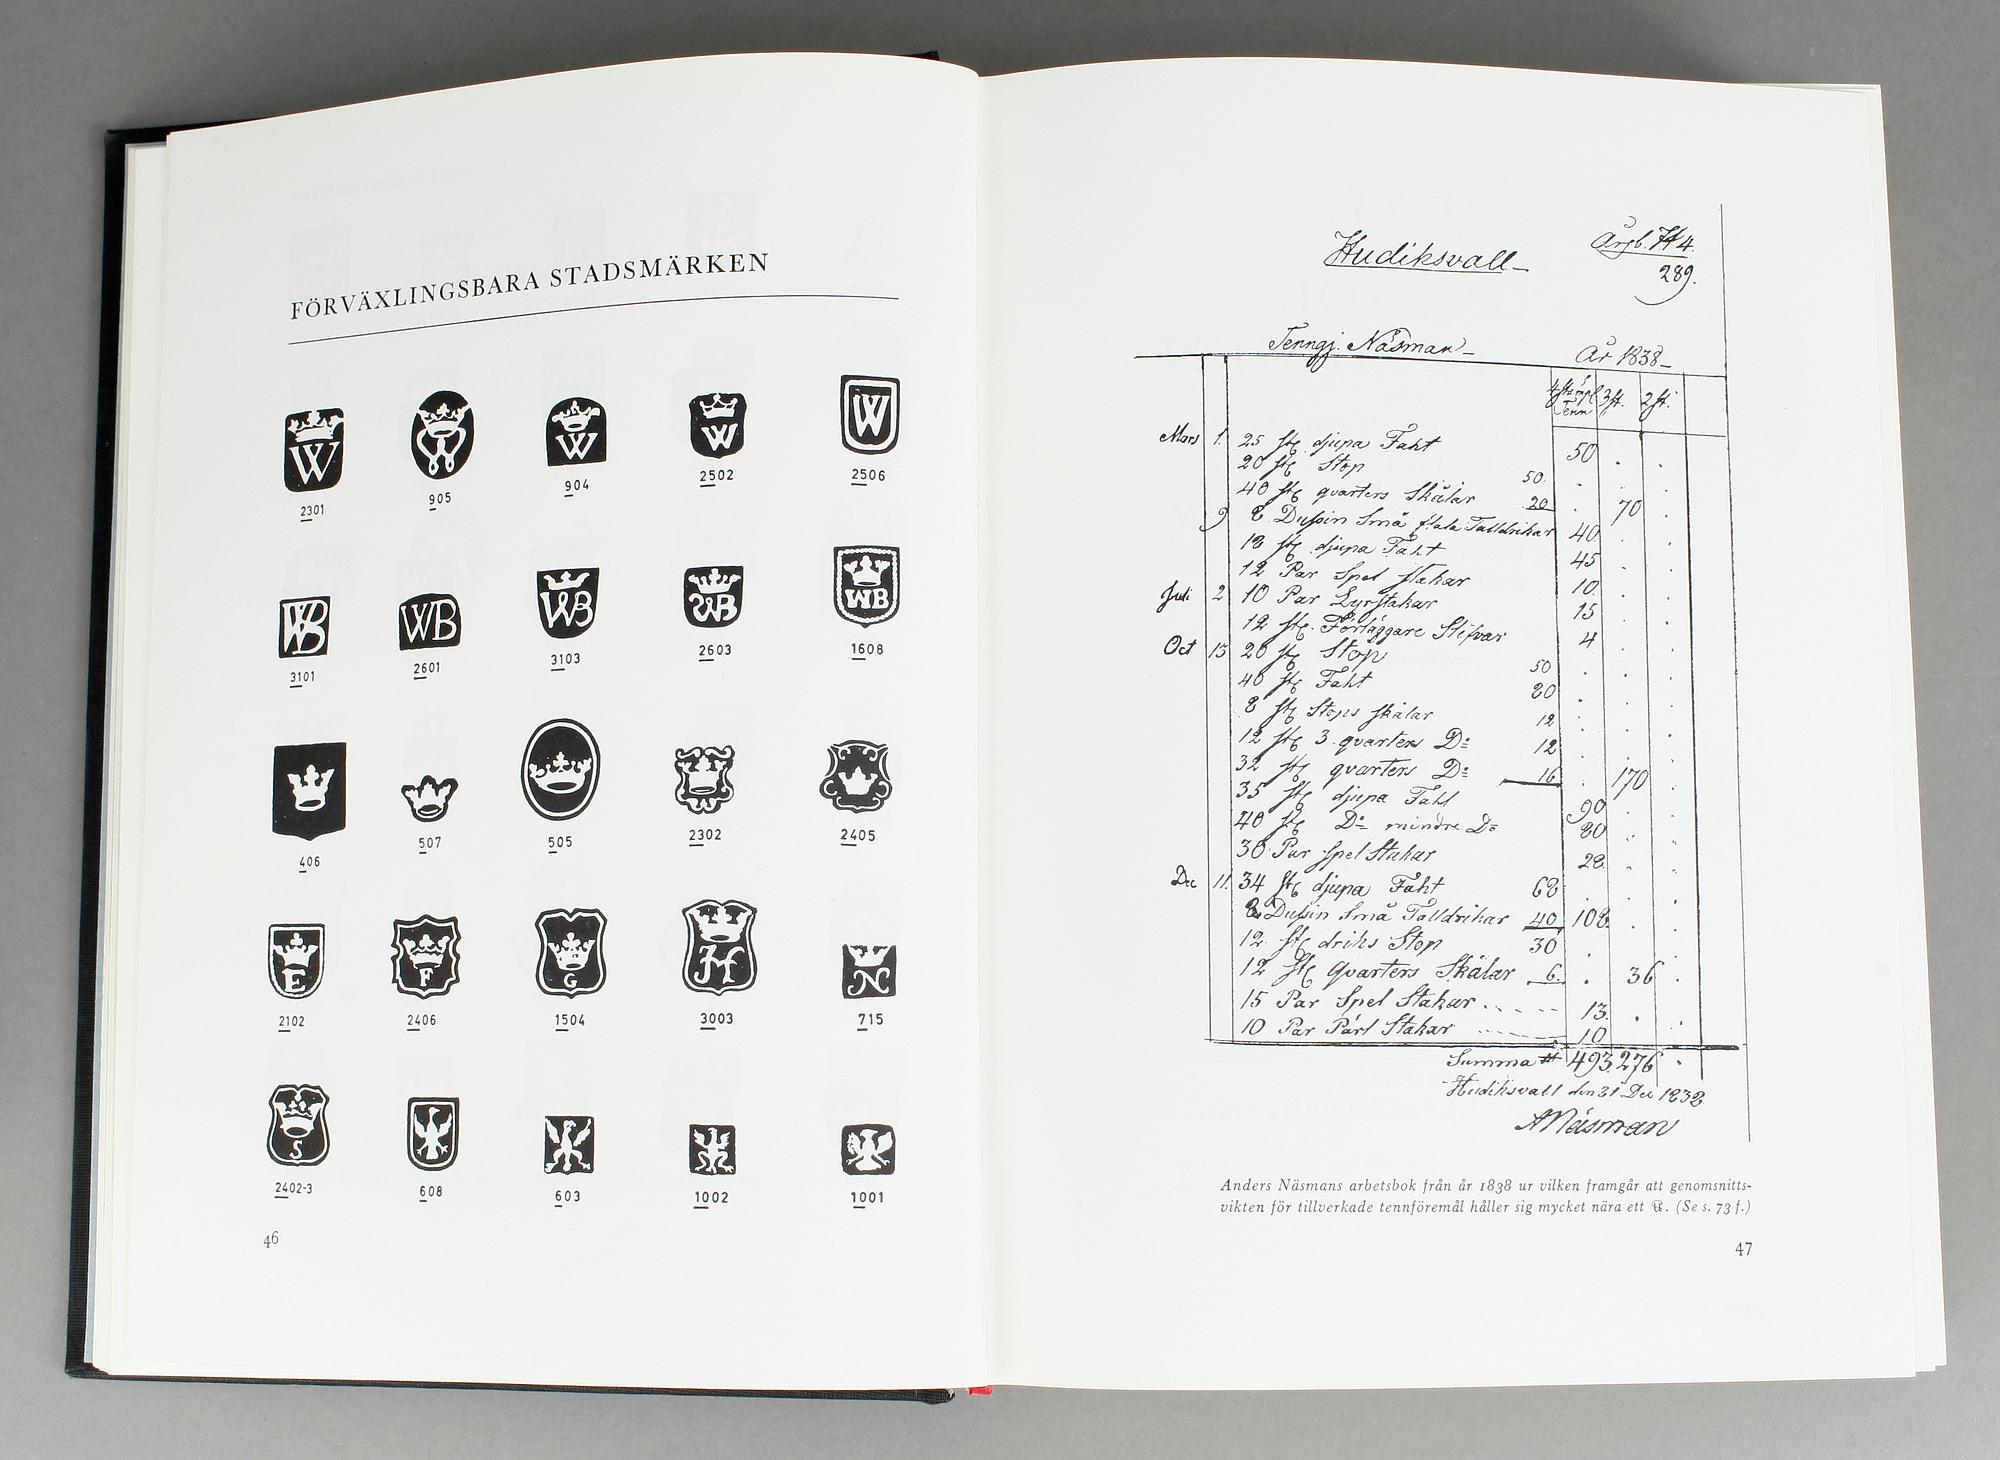 FÖRVÄXLINGSBARA STADSMÄRKEN
W W W W W
2301 905 904 2502 2506
WB WB WB WB WB
3101 2601 3103 2603 1608
406 507 505 2302 2405
E F G H N
2102 2406 1504 3003 715
S
2402-3 608 603 1002 1001
46
Hudiksvall
289.
Tenngj. Näsman
År 1838
3 st. 2 st.
Mars 1. 25 st djupa Faht 50
20 st Stop 50
40 st quarters Skålar 20 70
9 8 Dussin Små flata Talldrikar 40
18 st djupa Faht 45
12 Par Spel Stakar 10
Juli 2 10 Par Lyrstakar 15
12 st. Förläggare Slefvar 4
Oct 13 20 st Stop 50
40 st Faht 20
8 st Stops skålar 12
12 st 3 quarters Do 12
32 st quarters Do 16 170
35 st djupa Faht 90
40 st Do mindre Do 80
30 Par Spel Stakar 28
Dec 11. 34 st djupa Faht 68
8 Dussin Små Talldrikar 40 108
12 st driks Stop 30
12 st quarters Skålar 6 36
15 Par Spel Stakar 13
10 Par Pärl Stakar 10
Summa 493 276
Hudiksvall den 31 Dec 1838
A Näsman
Anders Näsmans arbetsbok från år 1838 ur vilken framgår att genomsnitts-
vikten för tillverkade tennföremål håller sig mycket nära ett . (Se s. 73 f.)
47